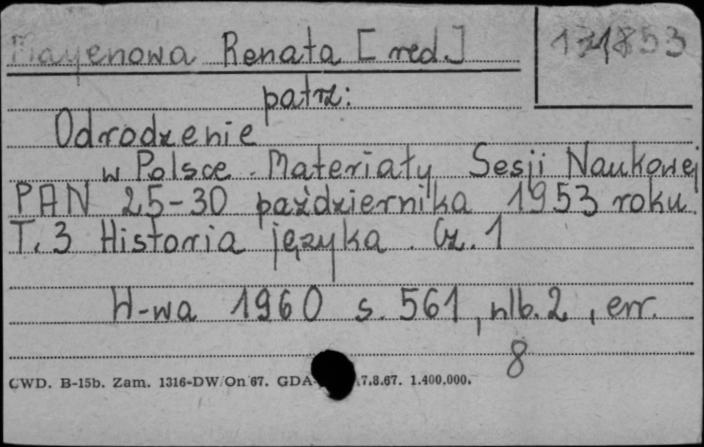 Mayenowa Renata [red.]
131853
patrz:
Odrodzenie
w Polsce. Materiały Sesji Naukowej
PAN 25-30 października 1953 roku.
T. 3 Historia języka. Cz. 1
W-wa 1960 s. 561, nlb. 2, err.
8
CWD. B-15b. Zam. 1316-DW/On/67. GDA- 7.8.67. 1.400.000.